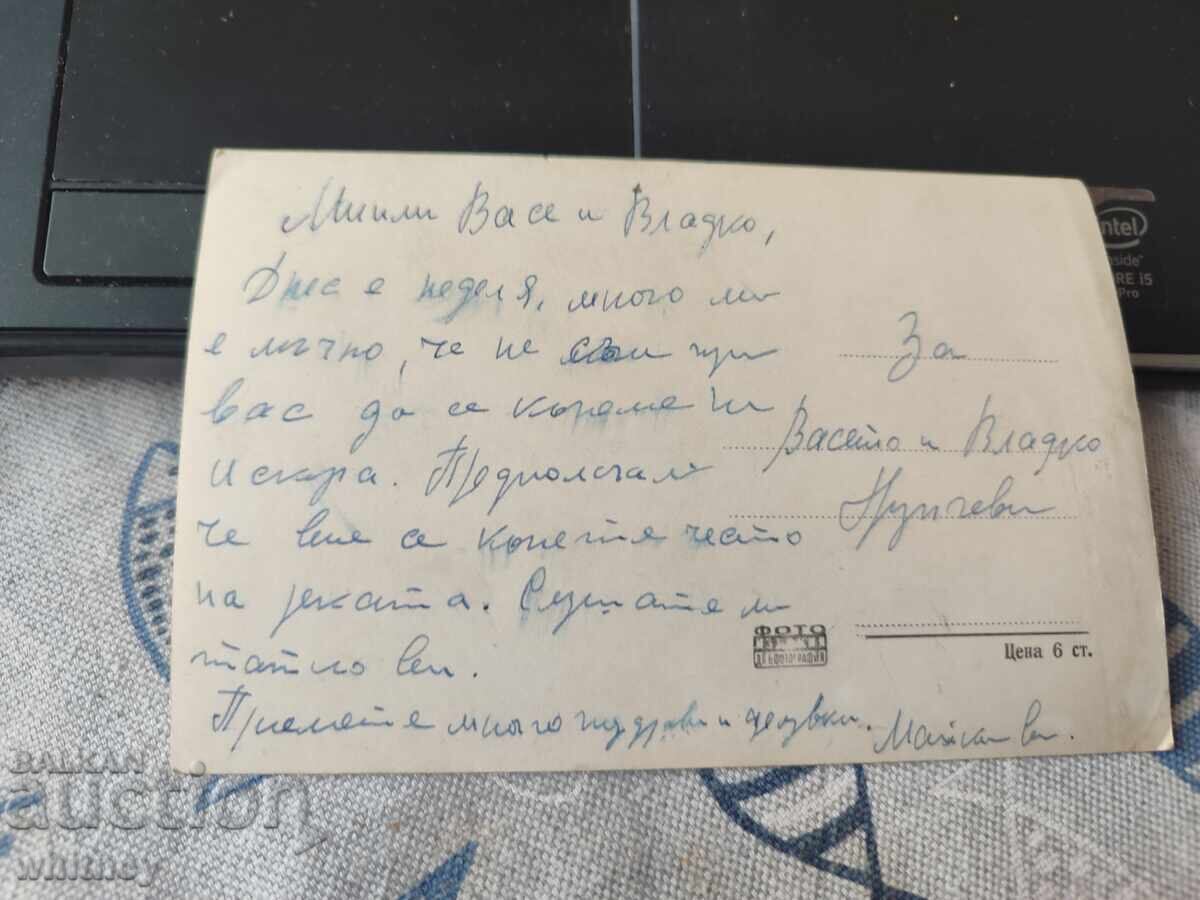 Мили Васе и Владко,
Днес е неделя, много ми
е мъчно, че не съм при
вас да се къпеме на
Искъра. Предполагам
че вие се къпете често
на реката. Слушате ли
татко ви.
Приемете много поздрави и целувки. Майка ви.
За
Васето и Владко
ФОТО
ДКФОТОГРАФИЯ
Цена 6 ст.
intel
inside
CORE i5
vPro
BALKAN
auction
whitney